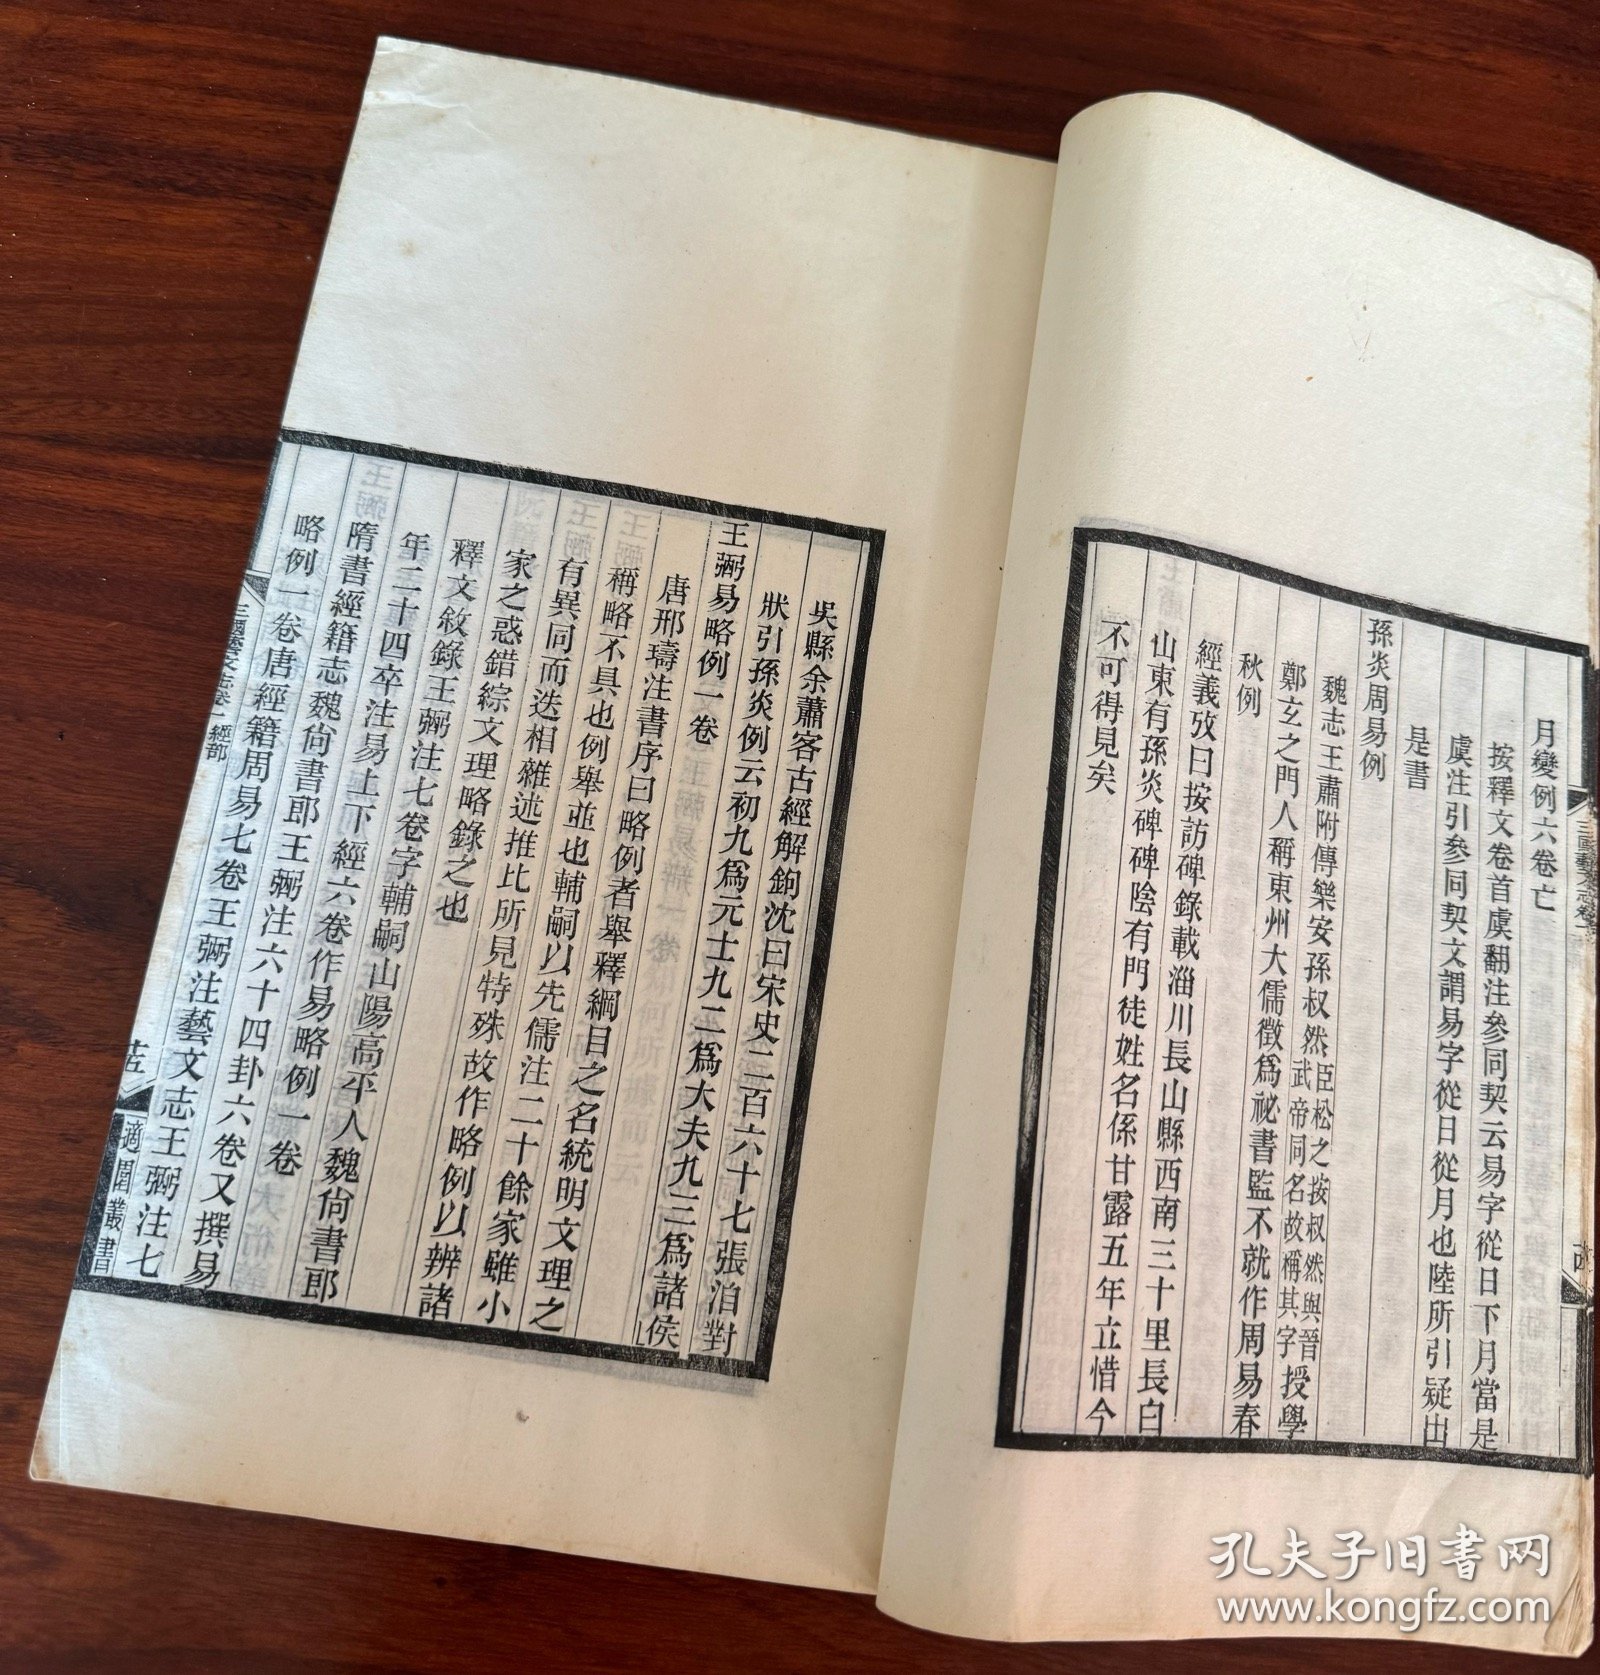 月變例六卷亡
按釋文卷首虞翻注參同契云易字從日下月當是
虞注引參同契文謂易字從日從月也陸所引疑出
是書
孫炎周易例
魏志王肅附傳樂安孫叔然臣松之按叔然與晉武帝同名故稱其字授學
鄭玄之門人稱東州大儒徵爲祕書監不就作周易春
秋例
經義攷曰按訪碑錄載淄川長山縣西南三十里長白
山東有孫炎碑碑陰有門徒姓名係甘露五年立惜今
不可得見矣
吳縣余蕭客古經解鉤沈曰宋史二百六十七張洎對
狀引孫炎例云初九爲元士九二爲大夫九三爲諸侯
王弼易略例一卷
唐邢璹注書序曰略例者舉釋綱目之名統明文理之
稱略不具也例舉並也輔嗣以先儒注二十餘家雖小
有異同而迭相雜述推比所見特殊故作略例以辨諸
家之惑錯綜文理略錄之也
釋文敘錄王弼注七卷字輔嗣山陽高平人魏尙書郎
年二十四卒注易上下經六卷作易略例一卷
隋書經籍志魏尙書郎王弼注六十四卦六卷又撰易
略例一卷唐經籍周易七卷王弼注藝文志王弼注七
三國藝文志卷一經部
適園叢書
孔夫子旧书网
www.kongfz.com